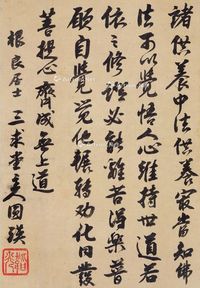 諸供養中法供養最當知佛
法可以覺悟人心維持世道若
依之修證必能離苦得樂普
願自覺覺他輾轉勸化同發
菩提心齊成無上道
根良居士 三求李
圓瑛